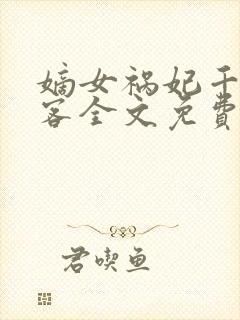 嫡女祸妃千
客全文免费
君喫鱼